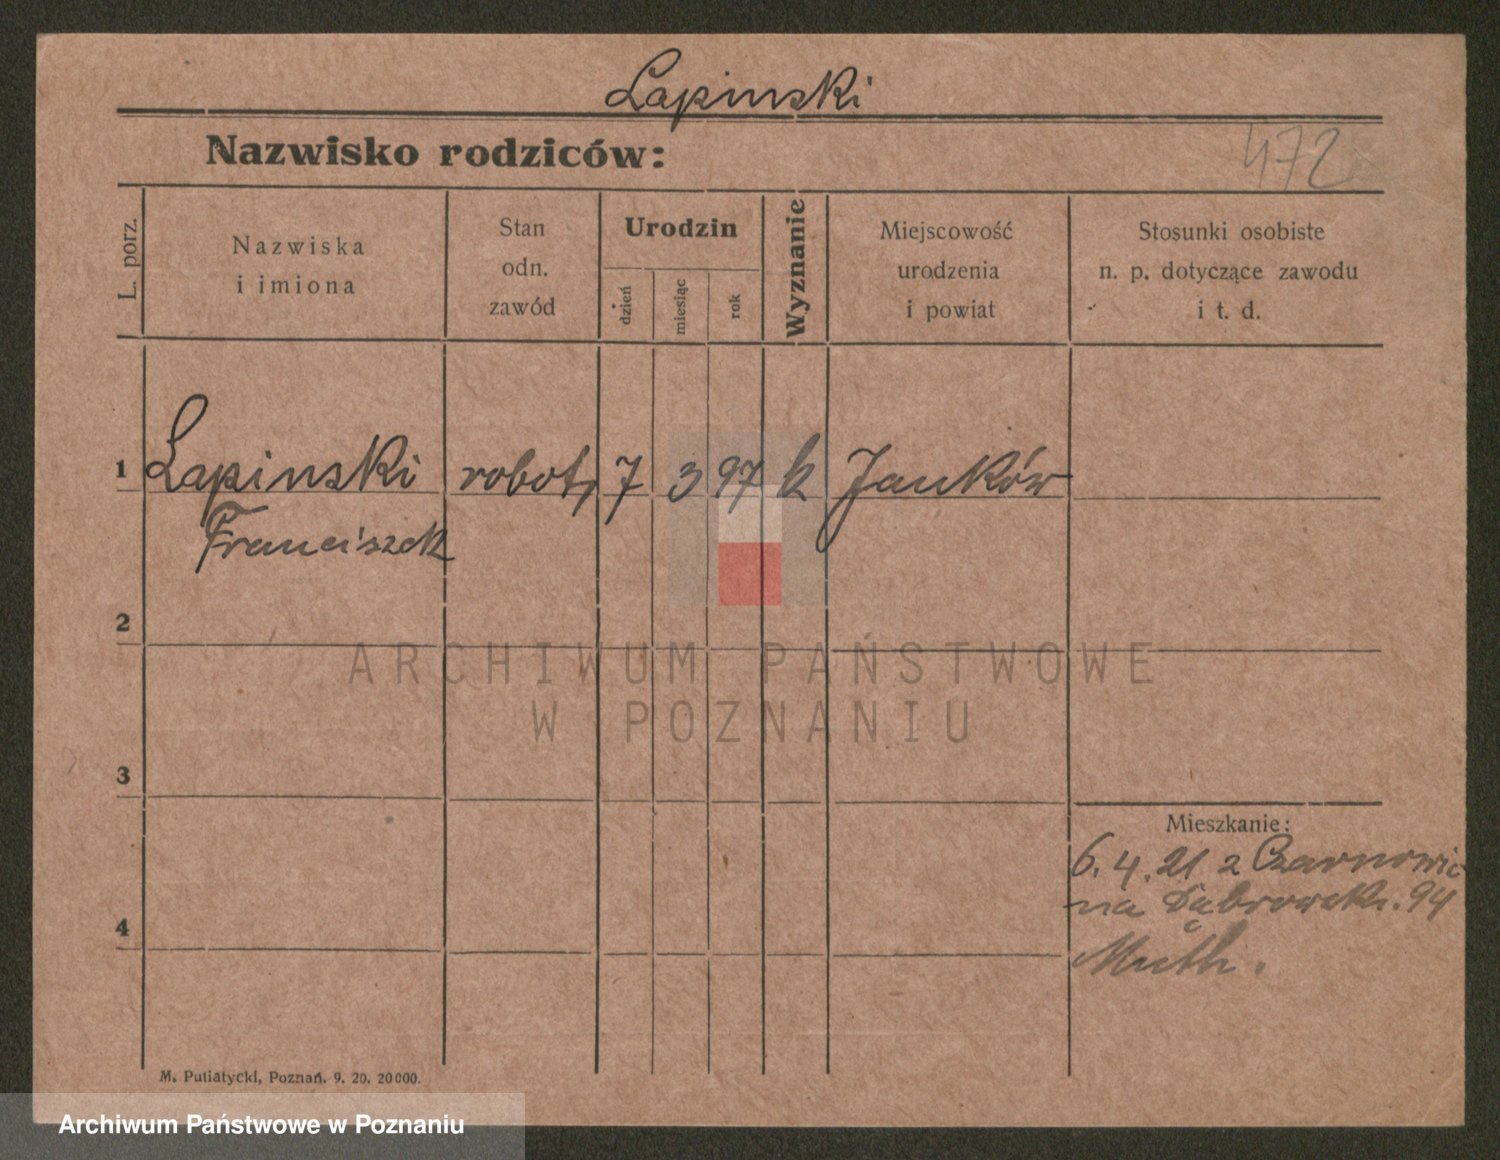 Lapinski
Nazwisko rodziców:
472
L. porz.
Nazwiska
i imiona
Stan
odn.
zawód
Urodzin
dzień
miesiąc
rok
Wyznanie
Miejscowość
urodzenia
i powiat
Stosunki osobiste
n. p. dotyczące zawodu
i t. d.
1 Lapinski robot, 7 3 97 k Janków
Franciszek
2
ARCHIWUM PAŃSTWOWE
W POZNANIU
3
Mieszkanie:
6.4.21 z Czarnowic
na Dąbrowsk. 94
4
Muth.
M. Putiatycki, Poznań. 9. 20. 20000.
Archiwum Państwowe w Poznaniu